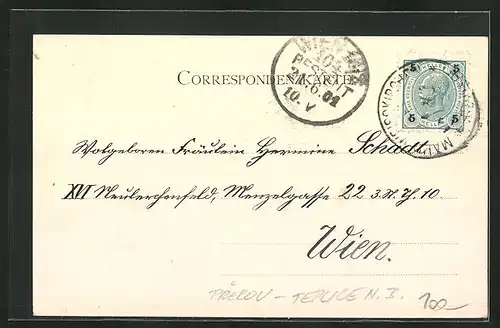 CORRESPONDENZKARTE
WIEN
BESTELLT
6.02
10.V
5 5
Wolgeboren Fräulein Hermine Schadt
XVI Neulerchenfeld, Menzelgasse 22 3.St. Th. 10.
Wien.
PŘEROV - TEPLICE N. B.
100-